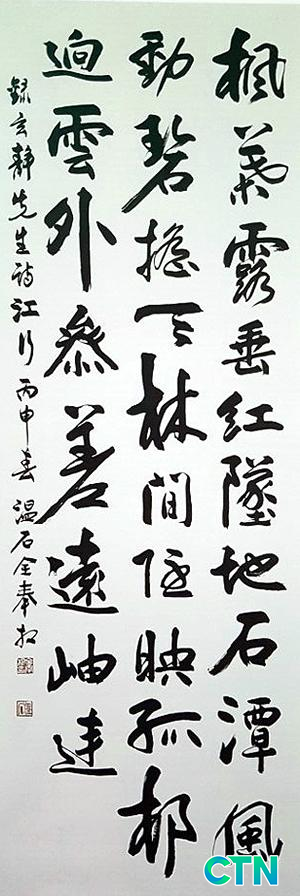 楓葉露垂紅墜地石潭風
動碧搖天林間隱映孤邨
逈雲外參差遠岫連
錄玄靜先生詩江行 丙申春 溫石 全奉
CTN